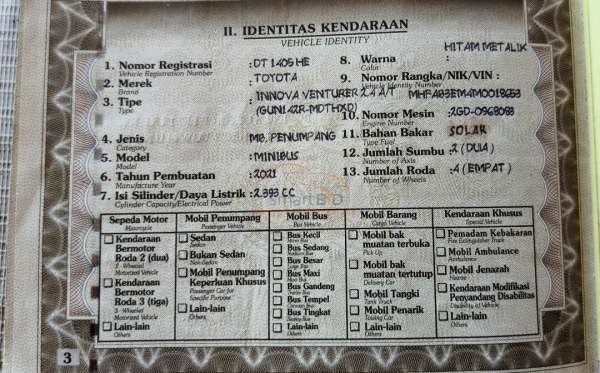 II. IDENTITAS KENDARAAN
VEHICLE IDENTITY
1. Nomor Registrasi : DT 1405 HE
Vehicle Registration Number
2. Merek : TOYOTA
Brand
3. Tipe : INNOVA VENTURER 2.4 A/T
Type (GUN142R-MDTHXD)
4. Jenis : MB. PENUMPANG
Category
5. Model : MINIBUS
Model
6. Tahun Pembuatan : 2021
Manufacture Year
7. Isi Silinder/Daya Listrik : 2.393 CC
Cylinder Capacity/Electrical Power
8. Warna : HITAM METALIK
Color
9. Nomor Rangka/NIK/VIN :
Vehicle Identity Number
10. Nomor Mesin : 2GD-0968083
Engine Number
11. Bahan Bakar SOLAR
Type Fuel
12. Jumlah Sumbu : 2 (DUA)
Number of Axis
13. Jumlah Roda : 4 (EMPAT)
Number of Wheels
Sepeda Motor
Motorcycle
Kendaraan
Bermotor
Roda 2 (dua)
2 - Wheeled
Motorized Vehicle
Kendaraan
Bermotor
Roda 3 (tiga)
3 - Wheeled
Motorized Vehicle
Lain-lain
Others
Mobil Penumpang
Passenger Vehicle
Sedan
Sedan
Bukan Sedan
Non-Sedan
Mobil Penumpang
Keperluan Khusus
Passenger Car for
Specific Purpose
Lain-lain
Others
Mobil Bus
Bus Vehicle
Bus Kecil
Bus Sedang
Bus Besar
Bus Maxi
Bus Gandeng
Bus Tempel
Bus Tingkat
Lain-lain
Others
Mobil Barang
Cargo Vehicle
Mobil bak
muatan terbuka
Pick Up
Mobil bak
muatan tertutup
Delivery Car
Mobil Tangki
Tank Truck
Mobil Penarik
Towing Car
Lain-lain
Others
Kendaraan Khusus
Special Vehicle
Pemadam Kebakaran
Fire Extinguisher Truck
Mobil Ambulance
Ambulance
Mobil Jenazah
Hearse
Kendaraan Modifikasi
Penyandang Disabilitas
Disability of Vehicle
Lain-lain
Others
3